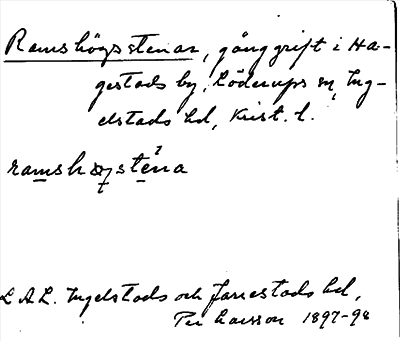 Ramshögsstenar, gånggrift i Ha-
gestads by, Löderups sn, Ing-
elstads hd, Krist. l.
L.A.L. Ingelstads och Järrestads hd,
Per Larsson 1897-98